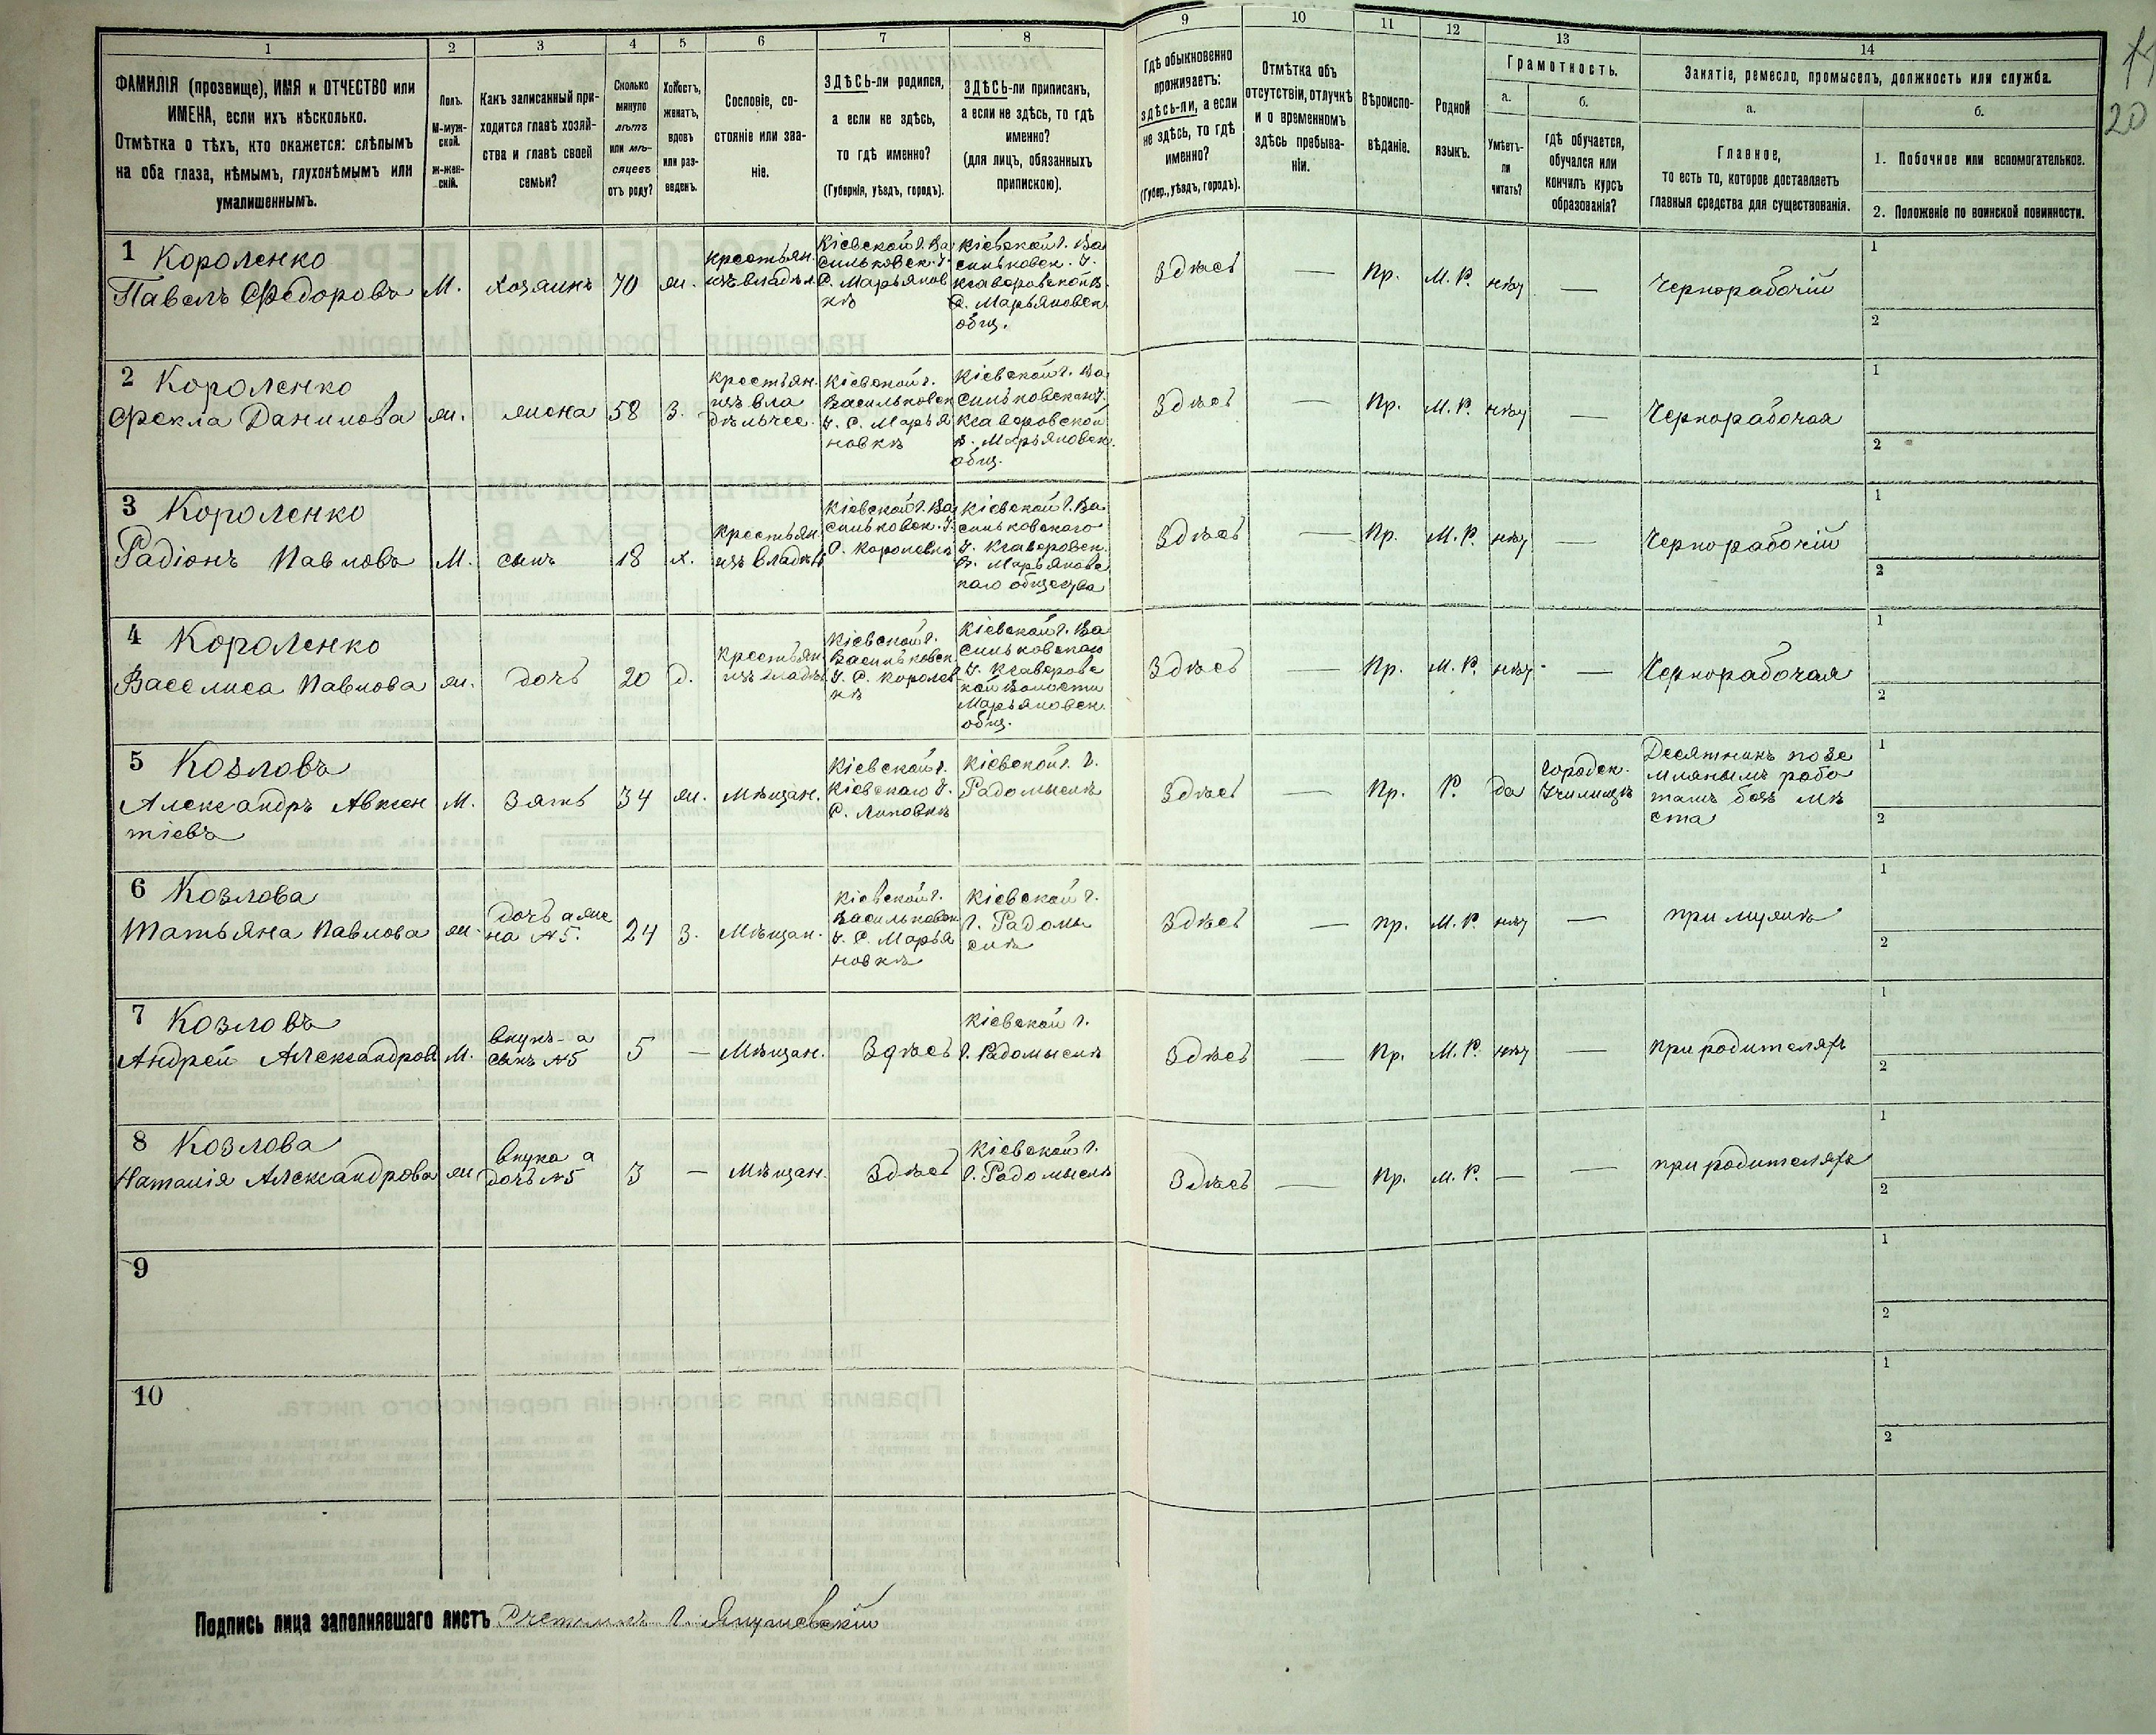 1
2
3
4
5
6
7
8
9
10
11
12
13
14
ФАМИЛІЯ (прозвище), ИМЯ и ОТЧЕСТВО или
ИМЕНА, если ихъ нѣсколько.
Отмѣтка о тѣхъ, кто окажется: слѣпымъ
на оба глаза, нѣмымъ, глухонѣмымъ или
умалишеннымъ.
Полъ.
М-муж-
ской.
Ж-жен-
скій.
Какъ записанный при-
ходится главѣ хозяй-
ства и главѣ своей
семьи?
Сколько
минуло
лѣтъ
или мѣ-
сяцевъ
отъ роду?
Холостъ,
женатъ,
вдовъ
или раз-
веденъ.
Сословіе, со-
стояніе или зва-
ніе.
ЗДѢСЬ-ли родился,
а если не здѣсь,
то гдѣ именно?
(Губернія, уѣздъ, городъ).
ЗДѢСЬ-ли приписанъ,
а если не здѣсь, то гдѣ
именно?
(для лицъ, обязанныхъ
припискою).
Гдѣ обыкновенно
проживаетъ:
здѣсь-ли, а если
не здѣсь, то гдѣ
именно?
(Губер., уѣздъ, городъ).
Отмѣтка объ
отсутствіи, отлучкѣ
и о временномъ
здѣсь пребыва-
ніи.
Вѣроиспо-
вѣданіе.
Родной
языкъ.
Грамотность.
а.
Умѣетъ-
ли
читать?
б.
гдѣ обучается,
обучался или
кончилъ курсъ
образованія?
Занятіе, ремесло, промыселъ, должность или служба.
а.
Главное,
то есть то, которое доставляетъ
главныя средства для существованія.
б.
1. Побочное или вспомогательное.
2. Положеніе по воинской повинности.
20
1 Короленко
Павелъ Федоровъ
М.
хозяинъ
70
ж.
крестьян.
изъ владѣл.
Кіевской г. Ва
сильковск. у.
С. Марьянов
кѣ
Кіевской г. Ва
сильковск. у.
Ксаверовской в.
С. Марьяновск.
общ.
Здѣсь
—
Пр.
М. Р.
нѣт
—
Чернорабочій
1
2
2 Короленко
Фекла Данилова
ж.
жена
58
З.
крестьян.
изъ вла
дѣльчес.
Кіевской г.
Васильковск
у. С. Марья
новкѣ
Кіевской г. Ва
сильковск. у.
Ксаверовской
в. Марьяновск.
общ.
Здѣсь
—
Пр.
М. Р.
нѣт
—
Чернорабочая
1
2
3 Короленко
Радіонъ Павловъ
М.
сынъ
18
х.
крестьян.
изъ владѣл
Кіевской г. Ва
сильковск. у.
С. Королевкѣ
Кіевской г. Ва
сильковскаго
у. Ксаверовск.
в. Марьяновс
каго общества
Здѣсь
—
Пр.
М. Р.
нѣт
—
Чернорабочій
1
2
4 Короленко
Василиса Павлова
ж.
дочь
20
д.
крестьян
изъ владѣл
Кіевской г.
Васильковск.
у. С. Королев
кѣ
Кіевской г. Ва
сильковскаго
у. Ксаверовс
кой волости
Марьяновск.
общ.
Здѣсь
—
Пр.
М. Р.
нѣт
—
Чернорабочая
1
2
5 Козловъ
Александръ Авксен
тіевъ
М.
Зять
34
ж.
Мѣщан.
Кіевской г.
Кіевскаго у.
С. Липовкѣ
Кіевской г. г.
Радомыслѣ
Здѣсь
—
Пр.
Р.
да
Городск.
Училищѣ
Десятникъ по зе
млянымъ рабо
тамъ безъ мѣ
ста
1
2
6 Козлова
Татьяна Павлова
ж.
Дочь а же
на №5.
24
З.
Мѣщан.
Кіевской г.
Васильковск.
у. С. Марья
новкѣ
Кіевской г.
г. Радомы
слѣ
Здѣсь
—
Пр.
М. Р.
нѣт
—
при мужѣ
1
2
7 Козловъ
Андрей Александровъ
М.
внукъ - а
сынъ №5
5
—
Мѣщан.
Здѣсь
Кіевской г.
г. Радомыслѣ
Здѣсь
—
Пр.
М. Р.
нѣт
—
при родителяхъ
1
2
8 Козлова
Наталія Александрова
ж
Внука а
дочь №5
3
—
Мѣщан.
Здѣсь
Кіевской г.
г. Радомыслѣ
Здѣсь
—
Пр.
М. Р.
—
—
при родителяхъ
1
2
9
1
2
10
1
2
Подпись лица заполнявшаго листъ Счетчикъ